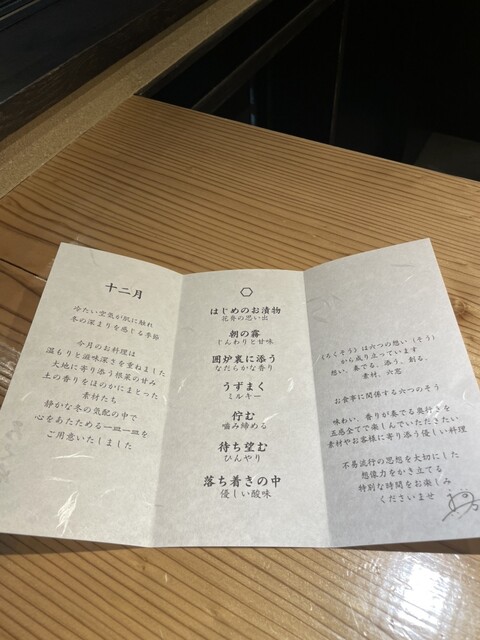 十二月
冷たい空気が肌に触れ
冬の深まりを感じる季節
今月のお料理は
温もりと滋味深さを重ねました
大地に寄り添う根菜の甘み
土の香りをほのかにまとった
素材たち
静かな冬の気配の中で
心をあたためる一皿一皿を
ご用意いたしました
はじめのお漬物
花弁の思い出
朝の霧
じんわりと甘味
囲炉裏に添う
なだらかな香り
うずまく
ミルキー
佇む
噛み締める
待ち望む
ひんやり
落ち着きの中
優しい酸味
(ろくそう)は六つの想い(そう)
から成り立っています
想い、奏でる、添う、創る、
素材、六窓
お食事に関係する六つのそう
味わい、香りが奏でる奥行きを
五感全てで楽しんでいただきたい
素材やお客様に寄り添う優しい料理
不易流行の思想を大切にした
想像力をかき立てる
特別な時間をお楽しみ
くださいませ